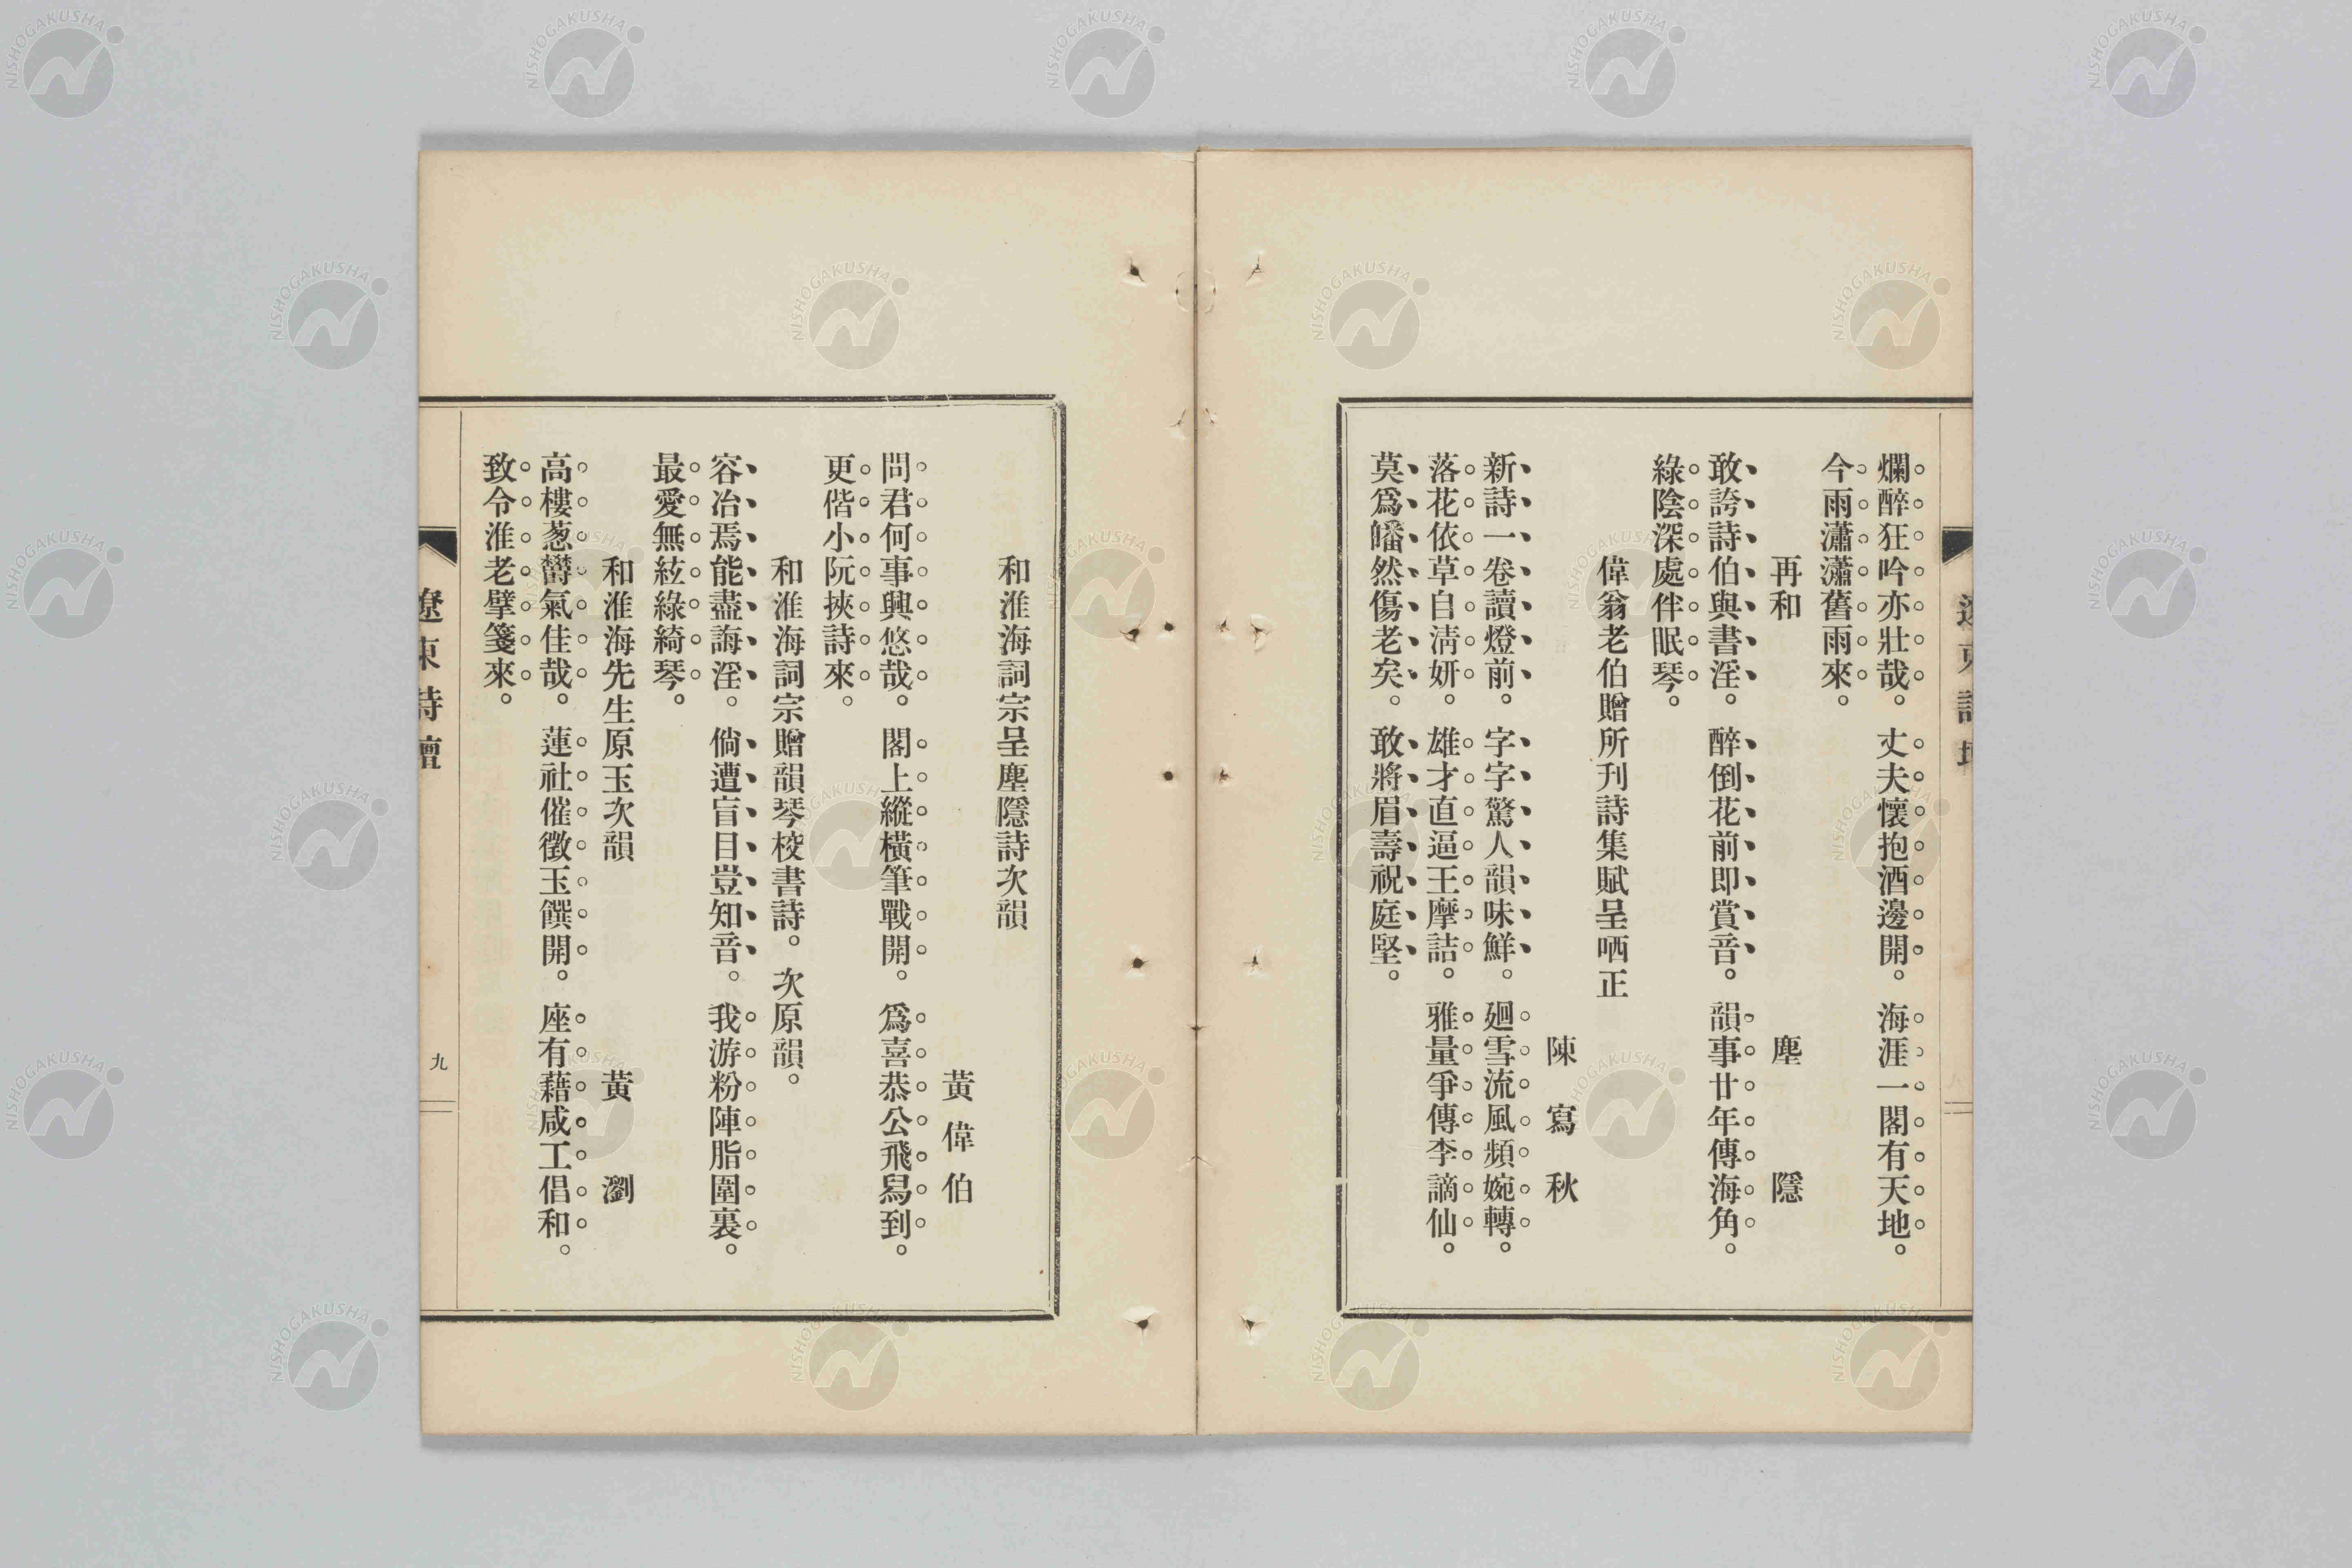 爛醉狂吟亦壯哉。丈夫懷抱酒邊開。海涯一閣有天地。
今雨瀟瀟舊雨來。
再和
塵隱
敢誇詩伯與書淫。醉倒花前即賞音。韻事廿年傳海角。
綠陰深處伴眠琴。
偉翁老伯贈所刊詩集賦呈哂正
陳寫秋
新詩一卷讀燈前。字字驚人韻味鮮。廻雪流風頻婉轉。
落花依草自淸姸。雄才直逼王摩詰。雅量爭傳李謫仙。
莫爲皤然傷老矣。敢將眉壽祝庭堅。
和淮海詞宗呈塵隱詩次韻
黃偉伯
問君何事興悠哉。閣上縱橫筆戰開。爲喜恭公飛舃到。
更偕小阮挾詩來。
和淮海詞宗贈韻琴校書詩。次原韻。
容冶焉能盡誨淫。倘遭盲目豈知音。我游粉陣脂圍裏。
最愛無絃綠綺琴。
和淮海先生原玉次韻
黃瀏
高樓葱鬱氣佳哉。蓮社催徵玉饌開。座有藉咸工倡和。
致令淮老擘箋來。
遼東詩壇
九
NISHOGAKUSHA